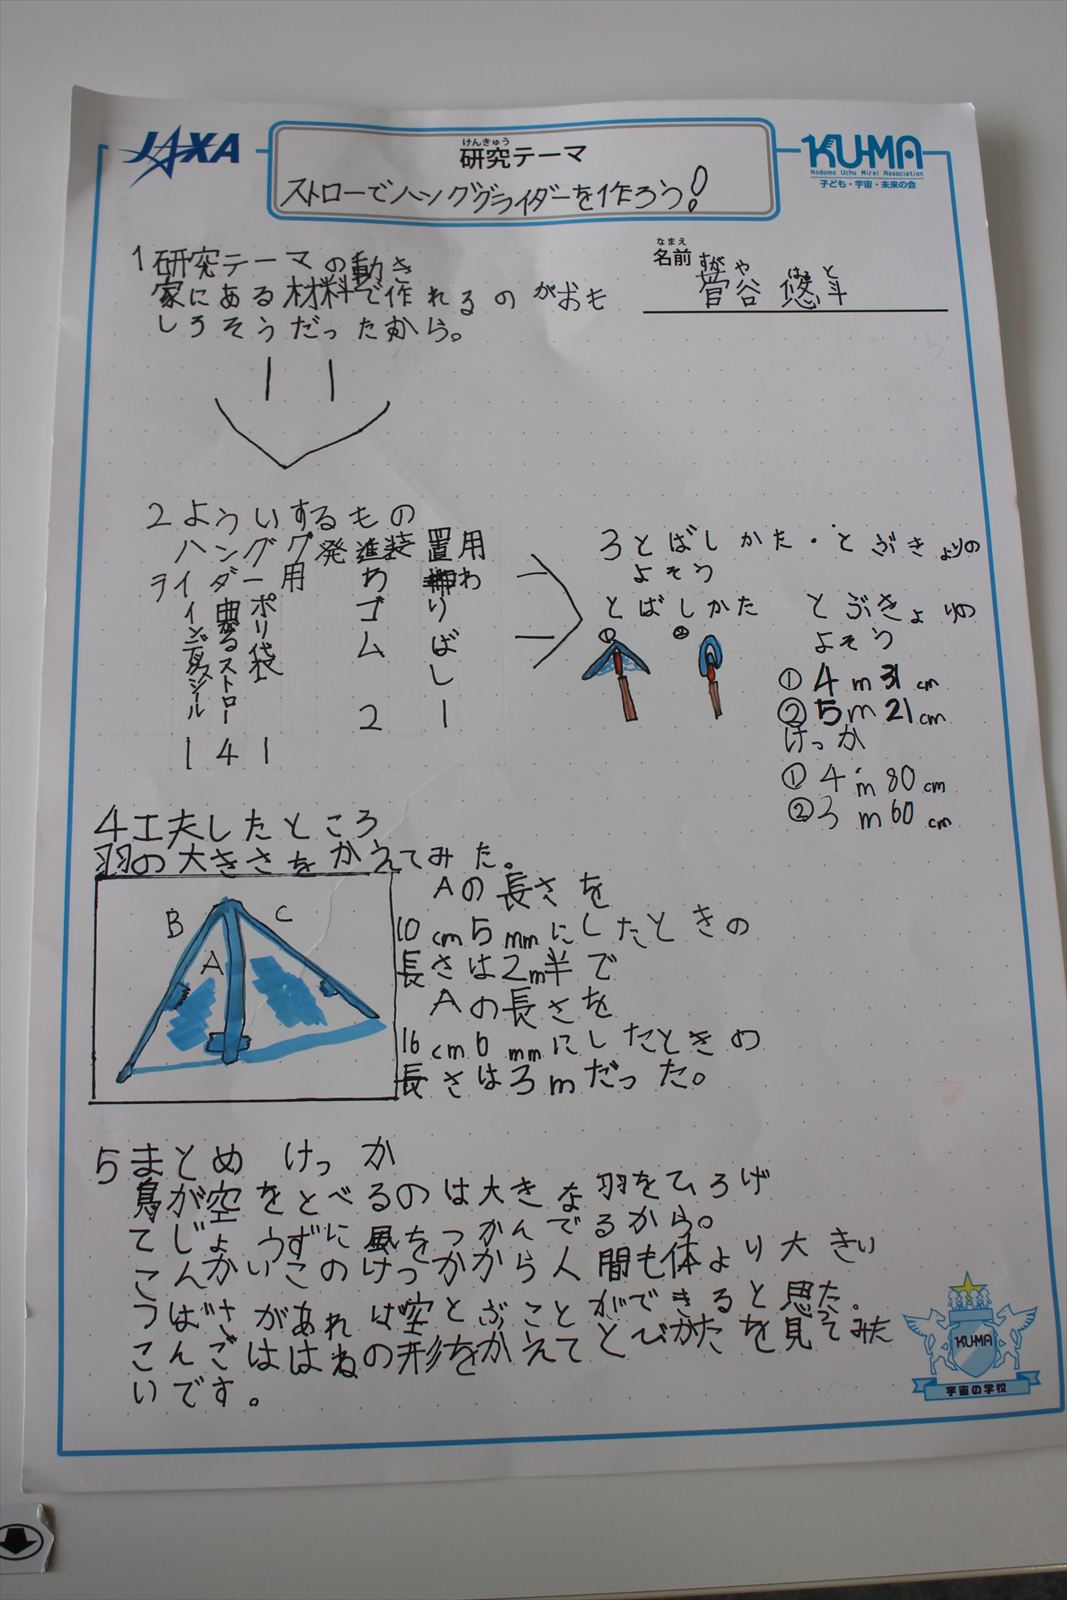 JAXA
けんきゅう
研究テーマ
ストローでハンググライダーを作ろう!
KU-MA
Kodomo Uchu Mirai Association
子ども・宇宙・未来の会
なまえ
名前
すが や はると
菅谷 悠斗
1 研究テーマの動き
家にある材料で作れるのがおも
しろそうだったから。
2 よういするもの
ハングライダー用
インデックスシール 1
曲がるストロー 4
ポリ袋 1
発進装置用
わゴム 2
わりばし 1
3 とばしかた・とぶきょりの
よそう
とばしかた
① ②
とぶきょりの
よそう
① 4m31cm
② 5m21cm
けっか
① 4m80cm
② 3m60cm
4 工夫したところ
羽の大きさをかえてみた。
B C
A
Aの長さを
10cm5mmにしたときの
長さは2m半で
Aの長さを
16cm0mmにしたときの
長さは3mだった。
5 まとめ けっか
鳥が空をとべるのは大きな羽をひろげ
てじょうずに風をつかんでるから。
こんかいこのけっかから人間も体より大きい
つばさがあれば空とぶことができると思た。
こんごははねの形をかえてとびかたを見てみた
いです。
KUMA
宇宙の学校